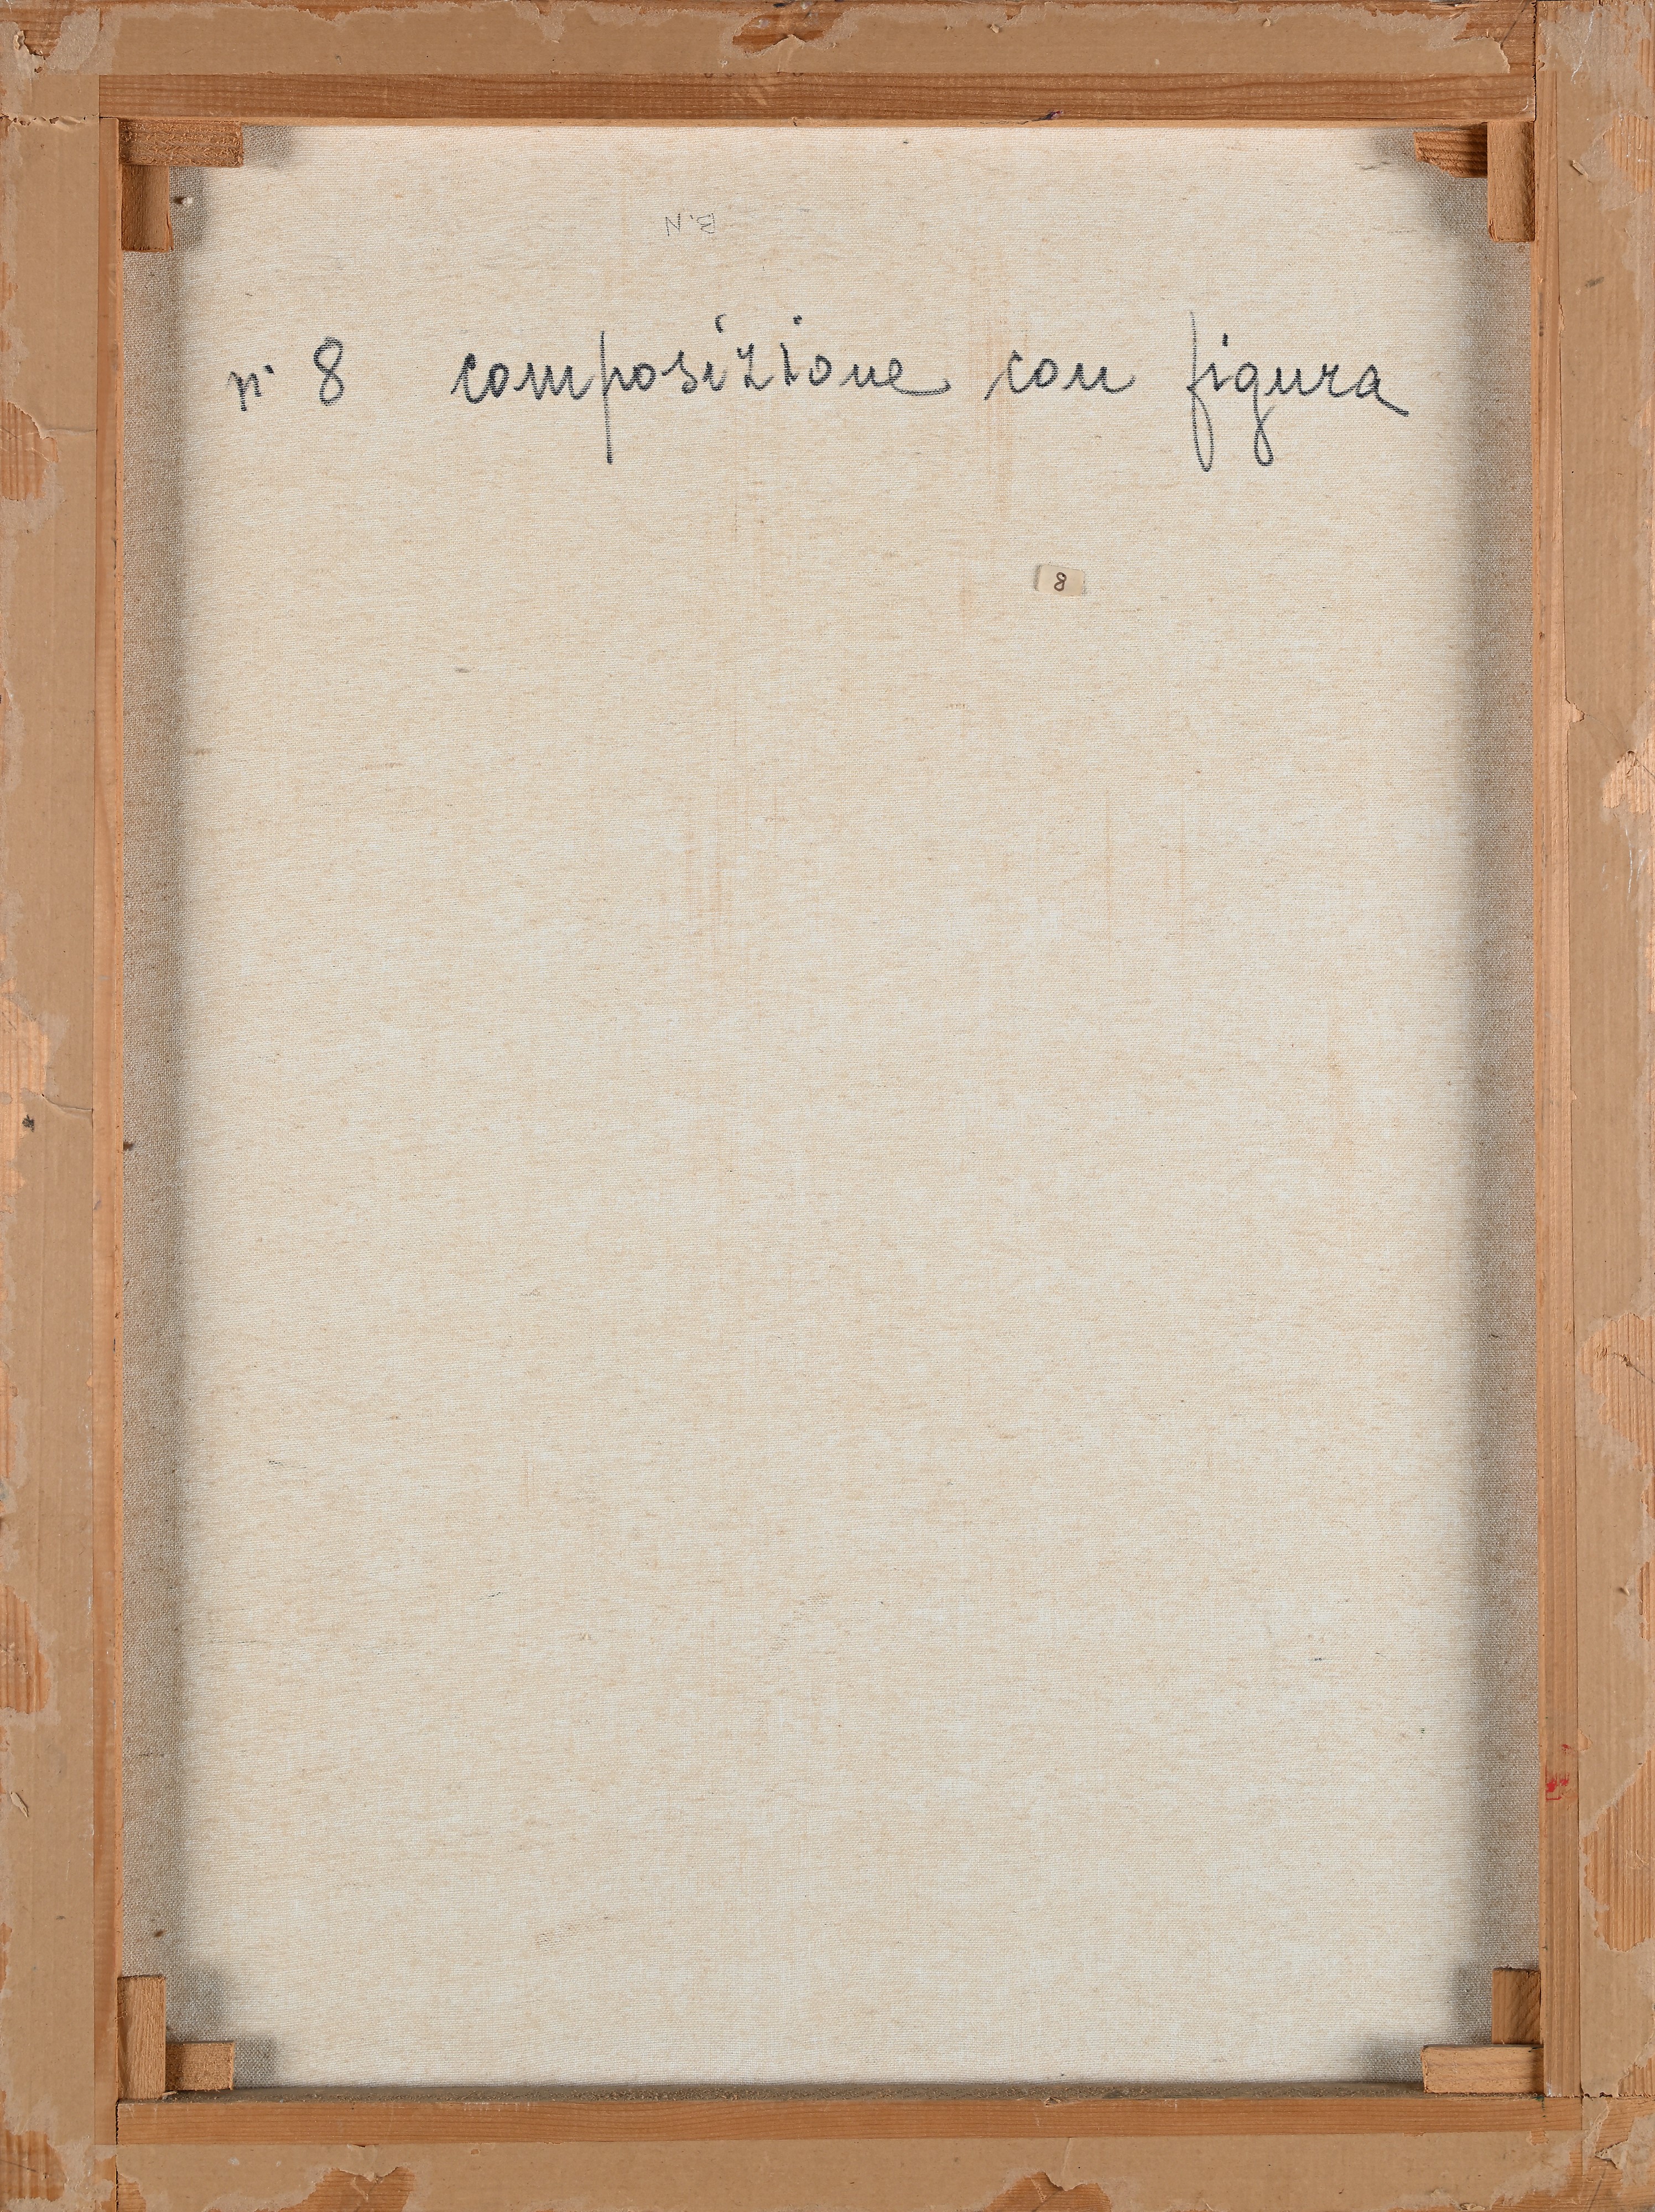 B.N
n° 8 composizione con figura
8